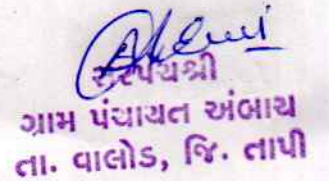 સરપંચશ્રી
ગ્રામ પંચાયત અંબાચ
તા. વાલોડ, જિ. તાપી